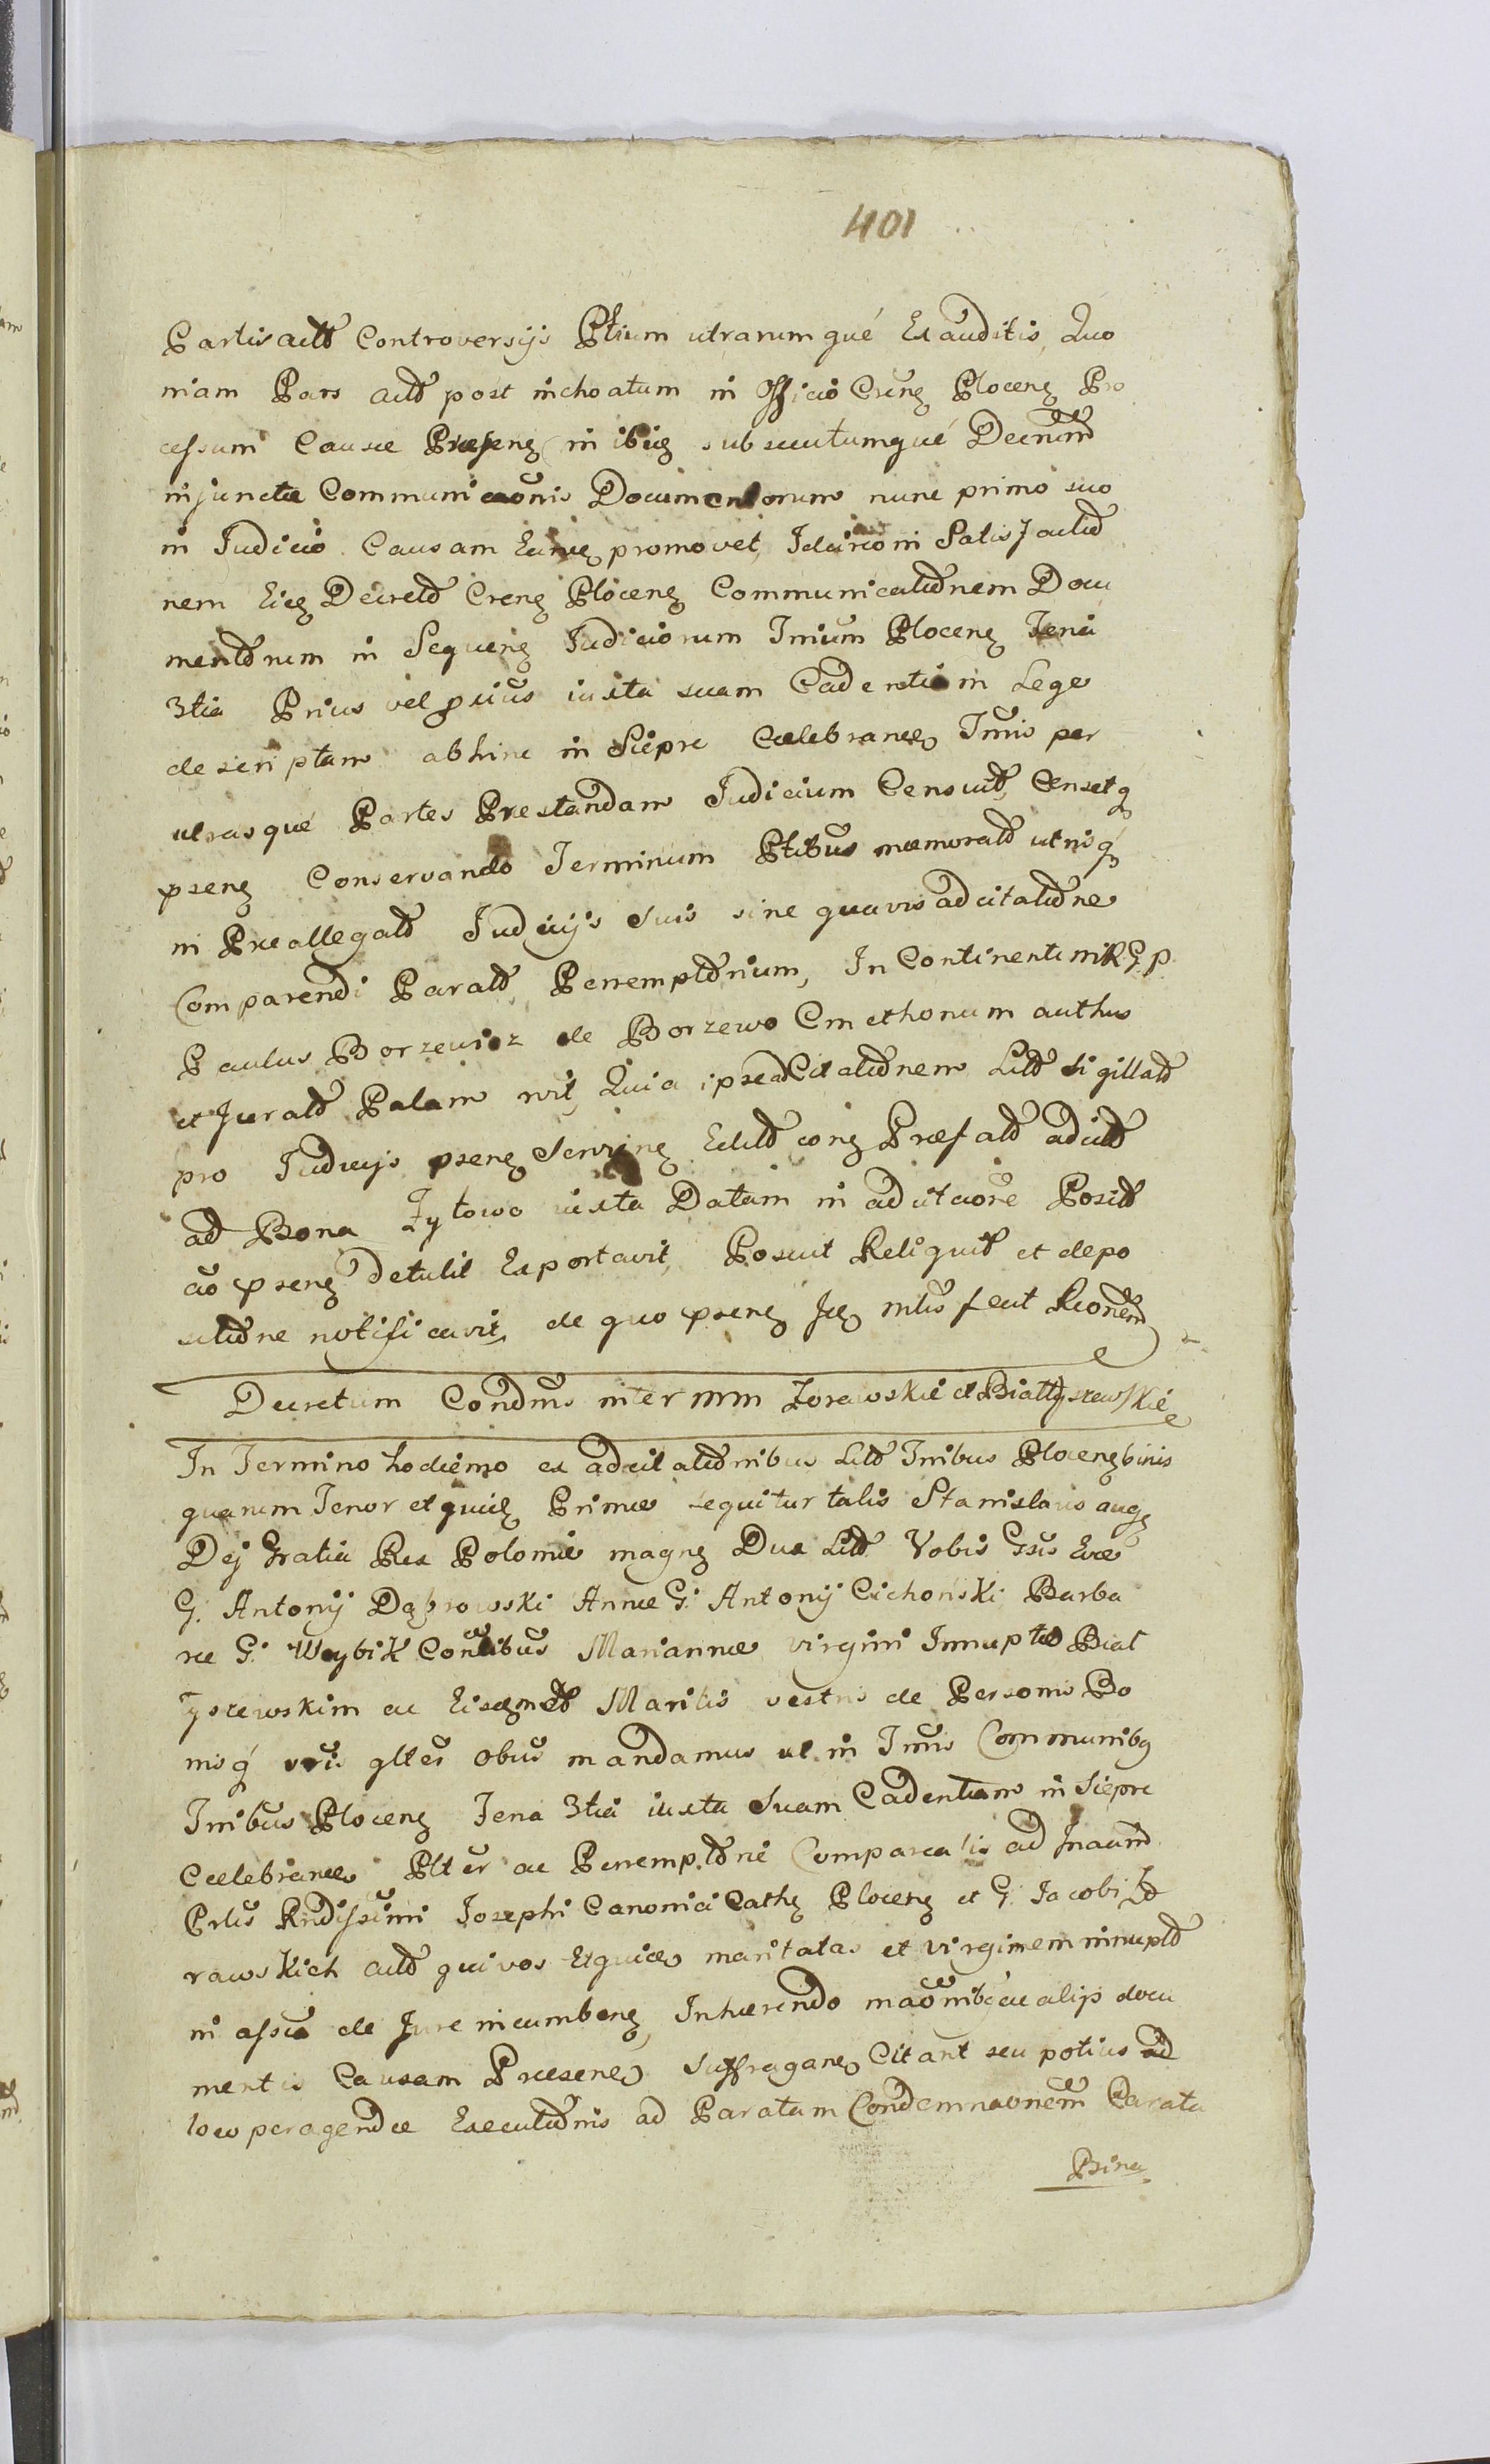 401
Partis actt Controversijs Ptium utrarumqué Exauditis, Quo
niam Pars actt post inchoatum in Officio Crenz Plocenz Pro
cessum Causæ Præsenz in ibiq subsecutumqué Decnum
injunctæ Communicaonis Documentorum nunc primo suo
in Judicio Causam promovet, Idcirco in Satisfactio
nem Ejq Decreto Crenz Plocenz Communicationem Docu
mentorum in Sequenz Judiciorum Trium Plocenz Tena
3tia Prius vel prius iuxta suam Cadentiam Lege
descriptam abhinc in Sieprc Cælebranz Trmis per
utrasqué Partes Præstandam Judicium Censuit, Censetq
psenz Conservando Terminum Ptibus memorat utrisq
in Præallegat Judicijs Suis sine quavis adcitatione
Comparendi Parat Peremptorium, In Continenti
Paulus Borzewicz de Borzewo Cmethonum authus
et Jurat Palam Quia ipse adCitationem Litt Sigillat
pro Judicijs psenz Edit Præfat adcitt
ad Bona Zytowo iuxta Datam in adcitaone Posit
psenz detulit Exportavit, Posuit Reliquit et depo
sitione notificavit, de quo psenz fecit Reonem
Decretum Condmis inter mm Zorawskie et Białłyszewskie
In Termino hodierno ex adcitationibus Litt Tribus Plocenz binis
quarum Tenor et quidz Primæ sequitur talis Stanislaus augz
Dej Gratia Rex Poloniæ magnz Dux Litt Vobis Gsis Evæ
G. Antonij Dąbrowski Annæ G. Antonij Cichoński Barba
ræ G. Woybik Contibus Mariannæ virgini Innuptæ Biał
łyszewskim ac Eisdem Maritis vestris de Personis Bo
nisq vris gltes obus mandamus ut in Trmis Communibq
Tribus Plocenz Tena 3tia iuxta Suam Cadentiam in Sieprc
Cælebranz Plter ac Peremptorie Compareatis ad Jnanm
Prlis Rndissimi Josephi Canonici Cathz Plocenz et G. Jacobi Zo
rawskich actt qui vos Etquidz maritatas et virginem innupt
in assa de Jure incumbenz, Inhærendo alijs docu
mentis Causam Præsenz Suffraganz Citant seu potius ad
loco peragendæ Executionis ad Paratam Condemnaonem Parata
Bina